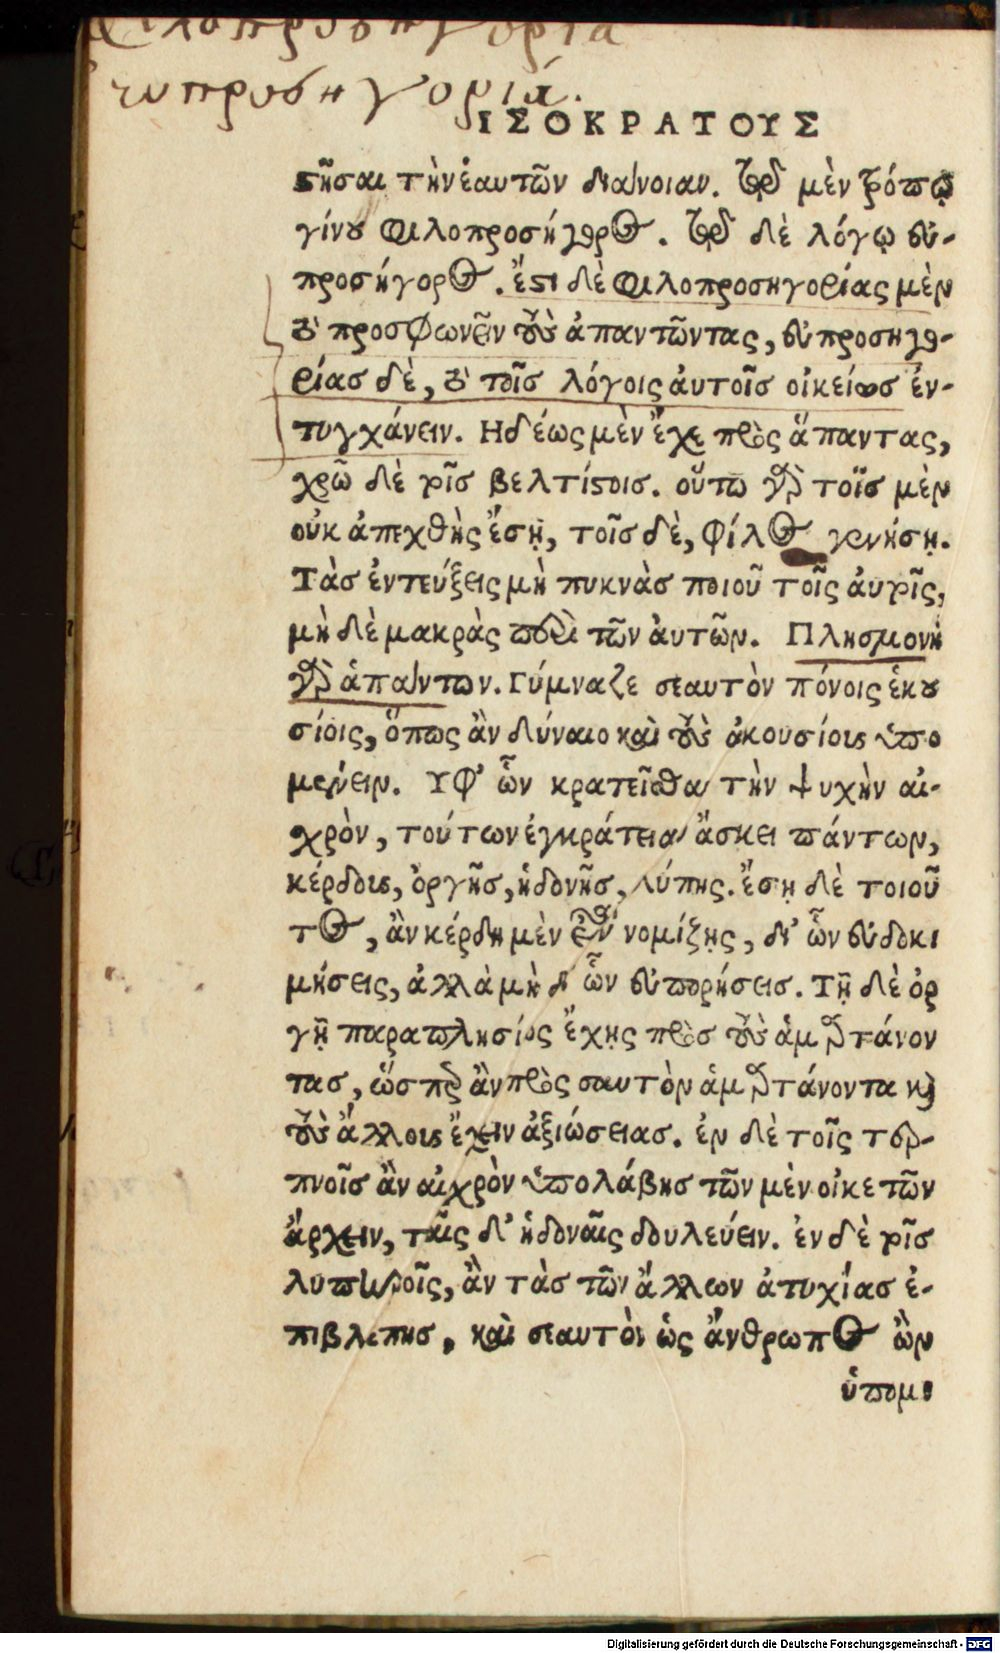 φιλοπροσηγορία
ευπροσηγορία.
ΙΣΟΚΡΑΤΟΥΣ
στῆσαι τὴν ἑαυτῶν διάνοιαν. τῷ μὲν τρόπῳ
γίνου φιλοπροσήγορος. τῷ δὲ λόγῳ εὐ-
προσήγορος. ἔστι δὲ φιλοπροσηγορίας μὲν
τὸ προσφωνεῖν τοὺς ἀπαντῶντας, εὐπροσηγο-
ρίας δὲ, τὸ τοῖς λόγοις αὐτοῖς οἰκείως ἐν-
τυγχάνειν. Ηδέως μὲν ἔχε πρὸς ἅπαντας,
χρῶ δὲ τοῖς βελτίστοις. οὕτω γὰρ τοῖς μὲν
οὐκ ἀπεχθὴς ἔσῃ, τοῖς δὲ, φίλος γενήσῃ.
Τὰς ἐντεύξεις μὴ πυκνὰς ποιοῦ τοῖς αὐτοῖς,
μὴ δὲ μακρὰς περὶ τῶν αὐτῶν. Πλησμονὴ
γὰρ ἁπάντων. Γύμναζε σεαυτὸν πόνοις ἑκου
σίοις, ὅπως ἂν δύναιο καὶ τοὺς ἀκουσίους ὑπο
μένειν. Υφ' ὧν κρατεῖσθαι τὴν ψυχὴν αἰ-
χρὸν, τούτων ἐγκράτειαν ἄσκει πάντων,
κέρδους, ὀργῆς, ἡδονῆς, λύπης. ἔσῃ δὲ τοιοῦ
τος, ἂν κέρδη μὲν εἶναι νομίζῃς, δι' ὧν εὐδοκι
μήσεις, ἀλλὰ μὴ δι' ὧν εὐπορήσεις. Τῇ δὲ ὀρ
γῇ παραπλησίως ἔχῃς πρὸς τοὺς ἁμαρτάνον
τας, ὥσπερ ἂν πρὸς σαυτὸν ἁμαρτάνοντα καὶ
τοὺς ἄλλους ἔχειν ἀξιώσειας. ἐν δὲ τοῖς τερ-
πνοῖς ἂν αἰχρὸν ὑπολάβης τῶν μὲν οἰκετῶν
ἄρχειν, ταῖς δ' ἡδοναῖς δουλεύειν. ἐν δὲ τοῖς
λυπηροῖς, ἂν τὰς τῶν ἄλλων ἀτυχίας ἐ-
πιβλέπης, καὶ σεαυτὸν ὡς ἄνθρωπος ὢν
ὑπομι
Digitalisierung gefördert durch die Deutsche Forschungsgemeinschaft - DFG